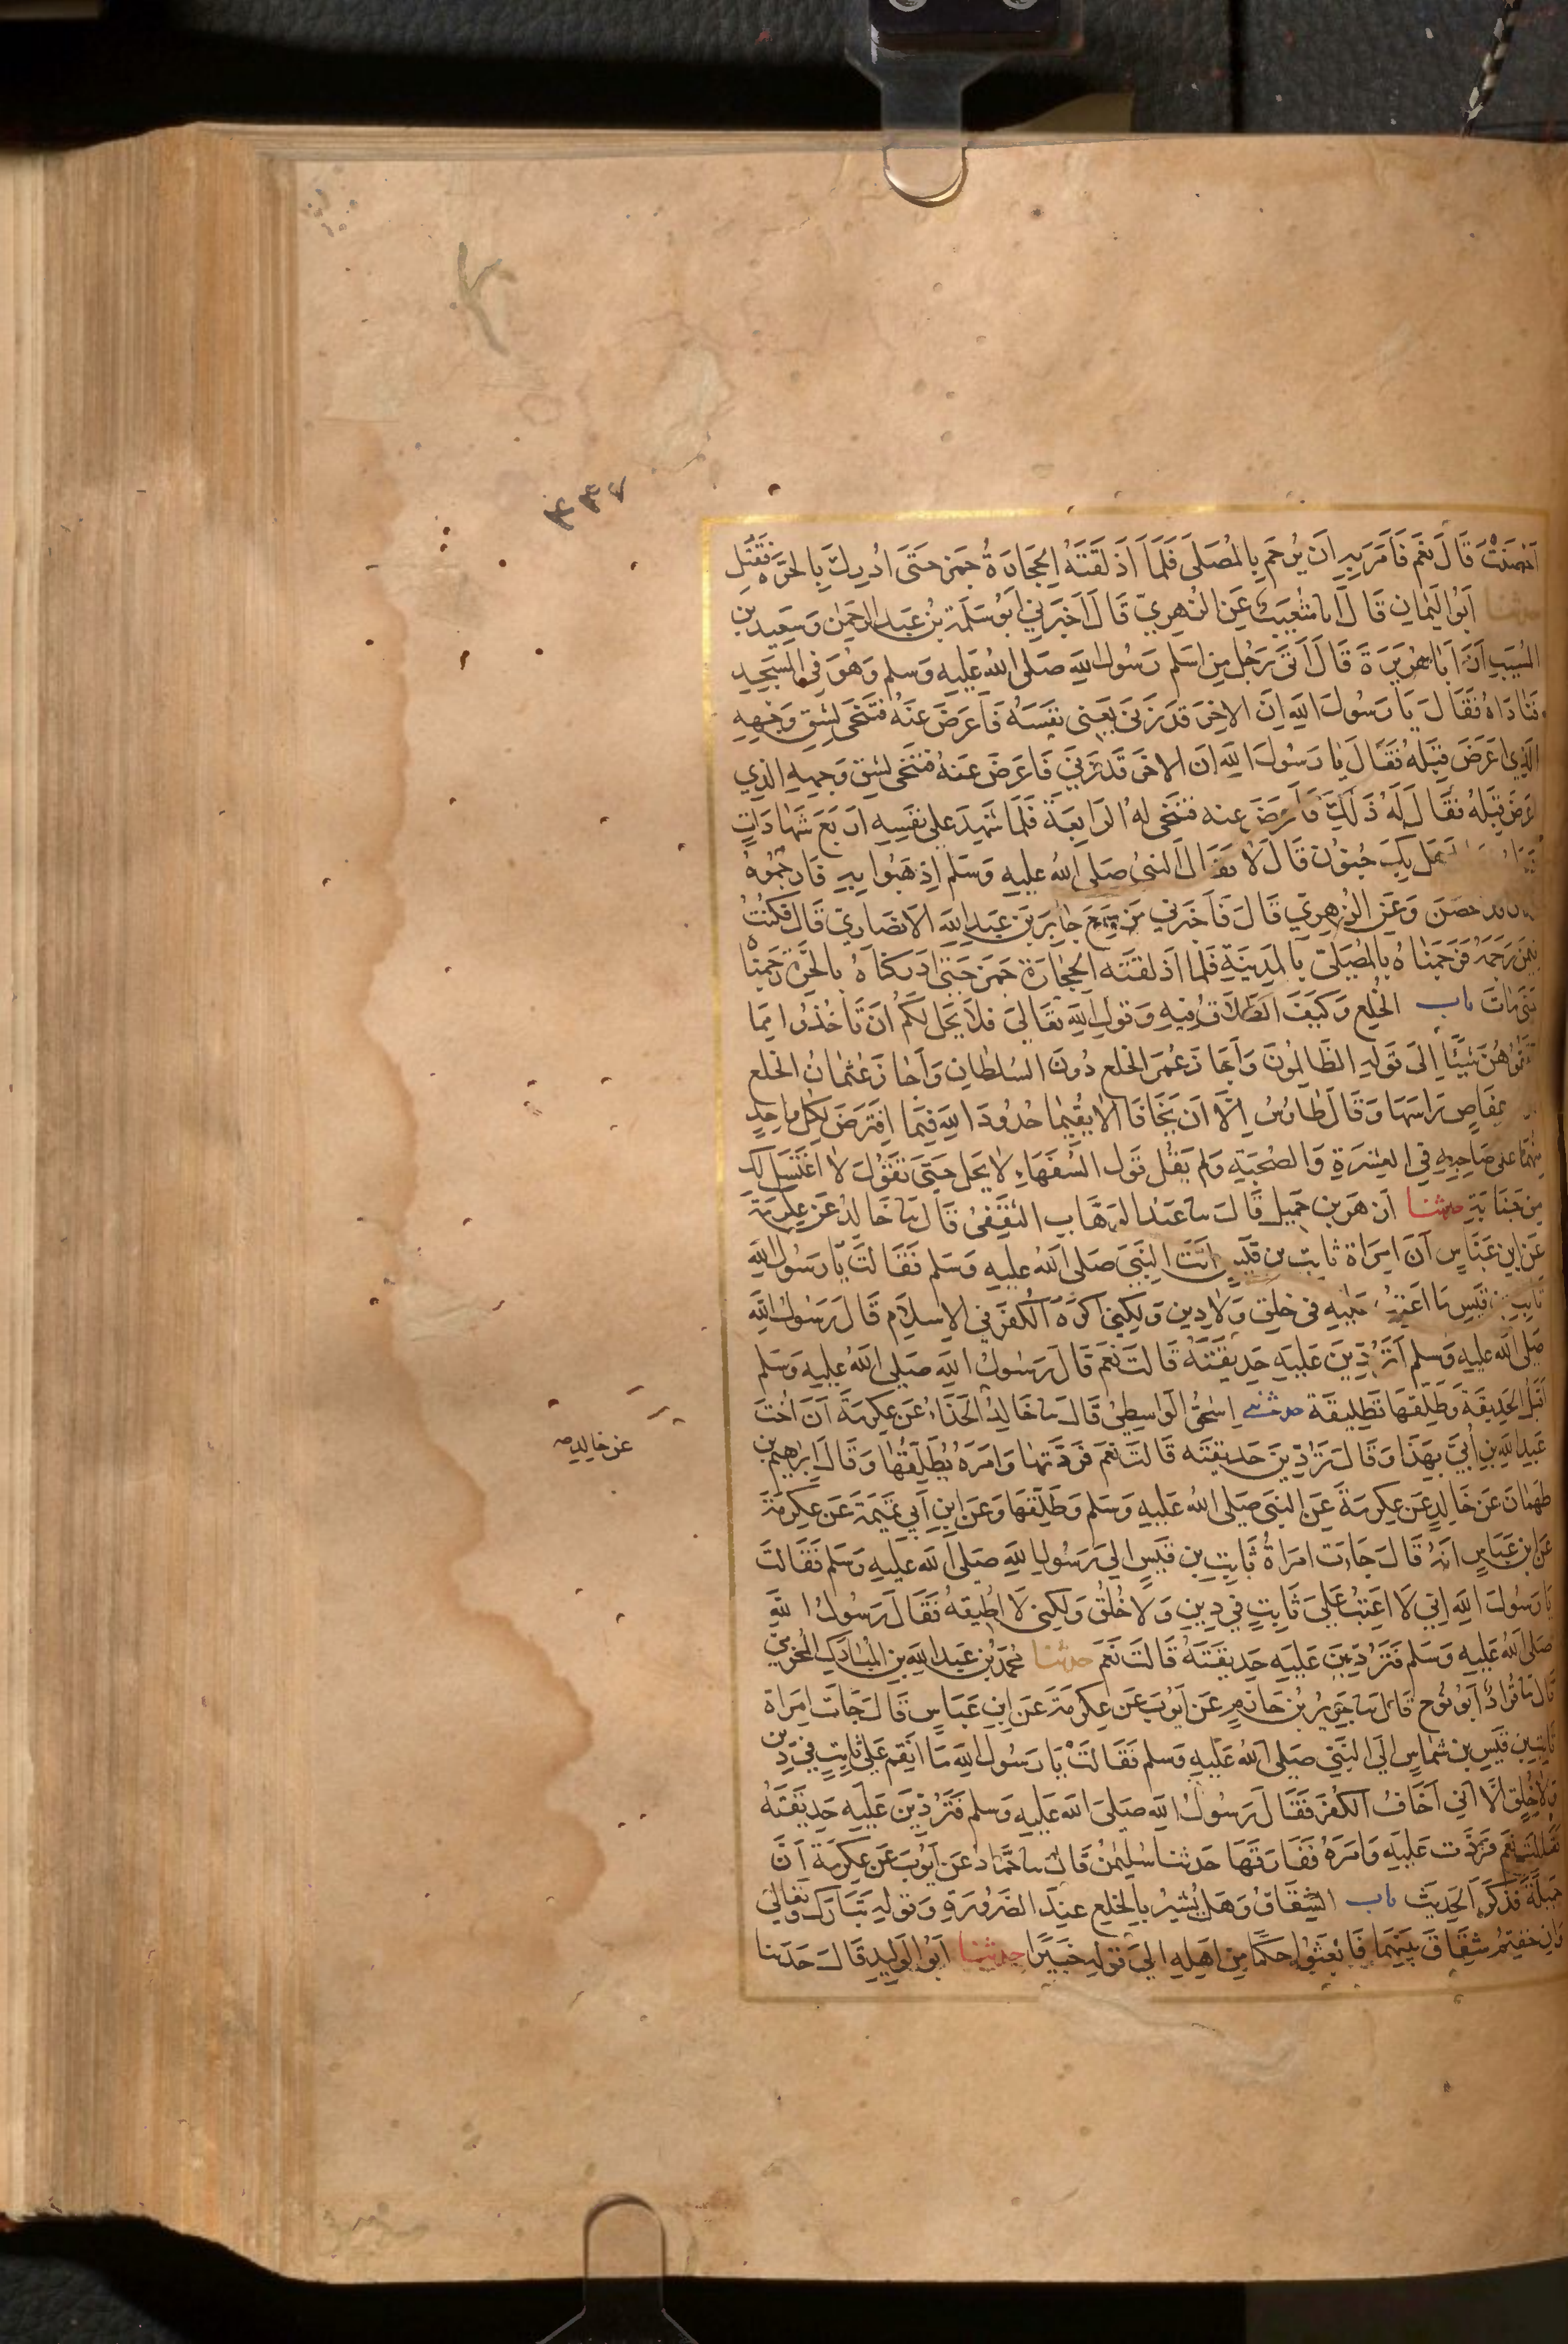 ٤٣٧
احصنت قال نعم فامر به ان يرجم بالمصلى فلما اذلقته الحجارة جمز حتى ادرك بالحرة فقتل
حدثنا ابو اليمان قال انا شعيب عن الزهري قال اخبرني ابو سلمة بن عبد الرحمن وسعيد بن
المسيب ان ابا هريرة قال اتى رجل من اسلم رسول الله صلى الله عليه وسلم وهو في المسجد
فناداه فقال يا رسول الله ان الاخر قد زنى يعني نفسه فاعرض عنه فتنحى لشق وجهه
الذي اعرض قبله فقال يا رسول الله ان الاخر قد زنى فاعرض عنه فتنحى لشق وجهه الذي
اعرض قبله فقال له ذلك فاعرض عنه فتنحى له الرابعة فلما شهد على نفسه اربع شهادات
هل بك جنون قال لا فقال النبي صلى الله عليه وسلم اذهبوا به فارجموه
قد احصن وعن الزهري قال فاخبرني من سمع جابر بن عبد الله الانصاري قال فكنت
فيمن رجمه فرجمناه بالمصلى بالمدينة فلما اذلقته الحجارة جمز حتى ادركناه بالحرة فرجمناه
حتى مات باب الخلع وكيف الطلاق فيه وقول الله تعالى فلا يحل لكم ان تاخذوا مما
آتيتموهن شيئا الى قوله الظالمون واجاز عمر الخلع دون السلطان واجاز عثمان الخلع
عقاص راسها وقال طاوس الا ان يخافا الا يقيما حدود الله فيما افترض لكل واحد
منهما على صاحبه في العشرة والصحبة ولم يقل قول السفهاء لا يحل حتى تقول لا اغتسل لك
من جنابة حدثنا ازهر بن جميل قال نا عبد الوهاب الثقفي قال نا خالد عن عكرمة
عن ابن عباس ان امراة ثابت بن قيس اتت النبي صلى الله عليه وسلم فقالت يا رسول الله
ثابت بن قيس ما اعتب عليه في خلق ولا دين ولكني اكره الكفر في الاسلام قال رسول الله
صلى الله عليه وسلم اتردين عليه حديقته قالت نعم قال رسول الله صلى الله عليه وسلم
اقبل الحديقة وطلقها تطليقة حدثني اسحق الواسطي قال نا خالد الحذاء عن عكرمة ان اخت
عبد الله بن ابي بهذا وقال تردين حديقته قالت نعم فردتها وامره يطلقها وقال ابراهيم بن
طهمان عن خالد عن عكرمة عن النبي صلى الله عليه وسلم وطلقها وعن ابن ابي تميمة عن عكرمة
عن ابن عباس انه قال جاءت امراة ثابت بن قيس الى رسول الله صلى الله عليه وسلم فقالت
يا رسول الله اني لا اعتب على ثابت في دين ولا خلق ولكني لا اطيقه فقال رسول الله
صلى الله عليه وسلم فتردين عليه حديقته قالت نعم حدثنا محمد بن عبد الله بن المبارك المخرمي
قال نا قراد ابو نوح قال نا جرير بن حازم عن ايوب عن عكرمة عن ابن عباس قال جاءت امراة
ثابت بن قيس بن شماس الى النبي صلى الله عليه وسلم فقالت يا رسول الله ما انقم على ثابت في دين
ولا خلق الا اني اخاف الكفر فقال رسول الله صلى الله عليه وسلم فتردين عليه حديقته
فقالت نعم فردت عليه وامره ففارقها حدثنا سليمن قال نا حماد عن ايوب عن عكرمة ان
جميلة فذكر الحديث باب الشقاق وهل يشير بالخلع عند الضرورة وقوله تبارك وتعالى
وان خفتم شقاق بينهما فابعثوا حكما من اهله الى قوله خبيرا حدثنا ابو الوليد قال حدثنا
عن خالد صح